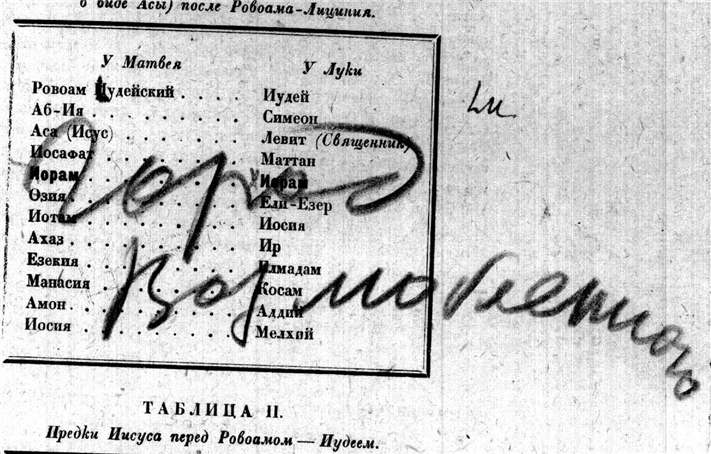 в виде Асы) после Ровоама-Лициния.
У Матвея У Луки
Ровоам Иудейский . . . . Иудей
Аб-Ия . . . . . . . . . Симеон
Аса (Исус) . . . . . . . Левит (Священник)
Иосафат . . . . . . . . Маттан
Иорам . . . . . . . . . Иорам
Озия . . . . . . . . . . Ели-Езер
Иотам . . . . . . . . . Иосия
Ахаз . . . . . . . . . . Ир
Езекия . . . . . . . . . Елмадам
Манасия . . . . . . . . Косам
Амон . . . . . . . . . . Аддий
Иосия . . . . . . . . . Мелхий
Город
Возлюбленного
ТАБЛИЦА II.
Предки Иисуса перед Ровоамом — Иудеем.